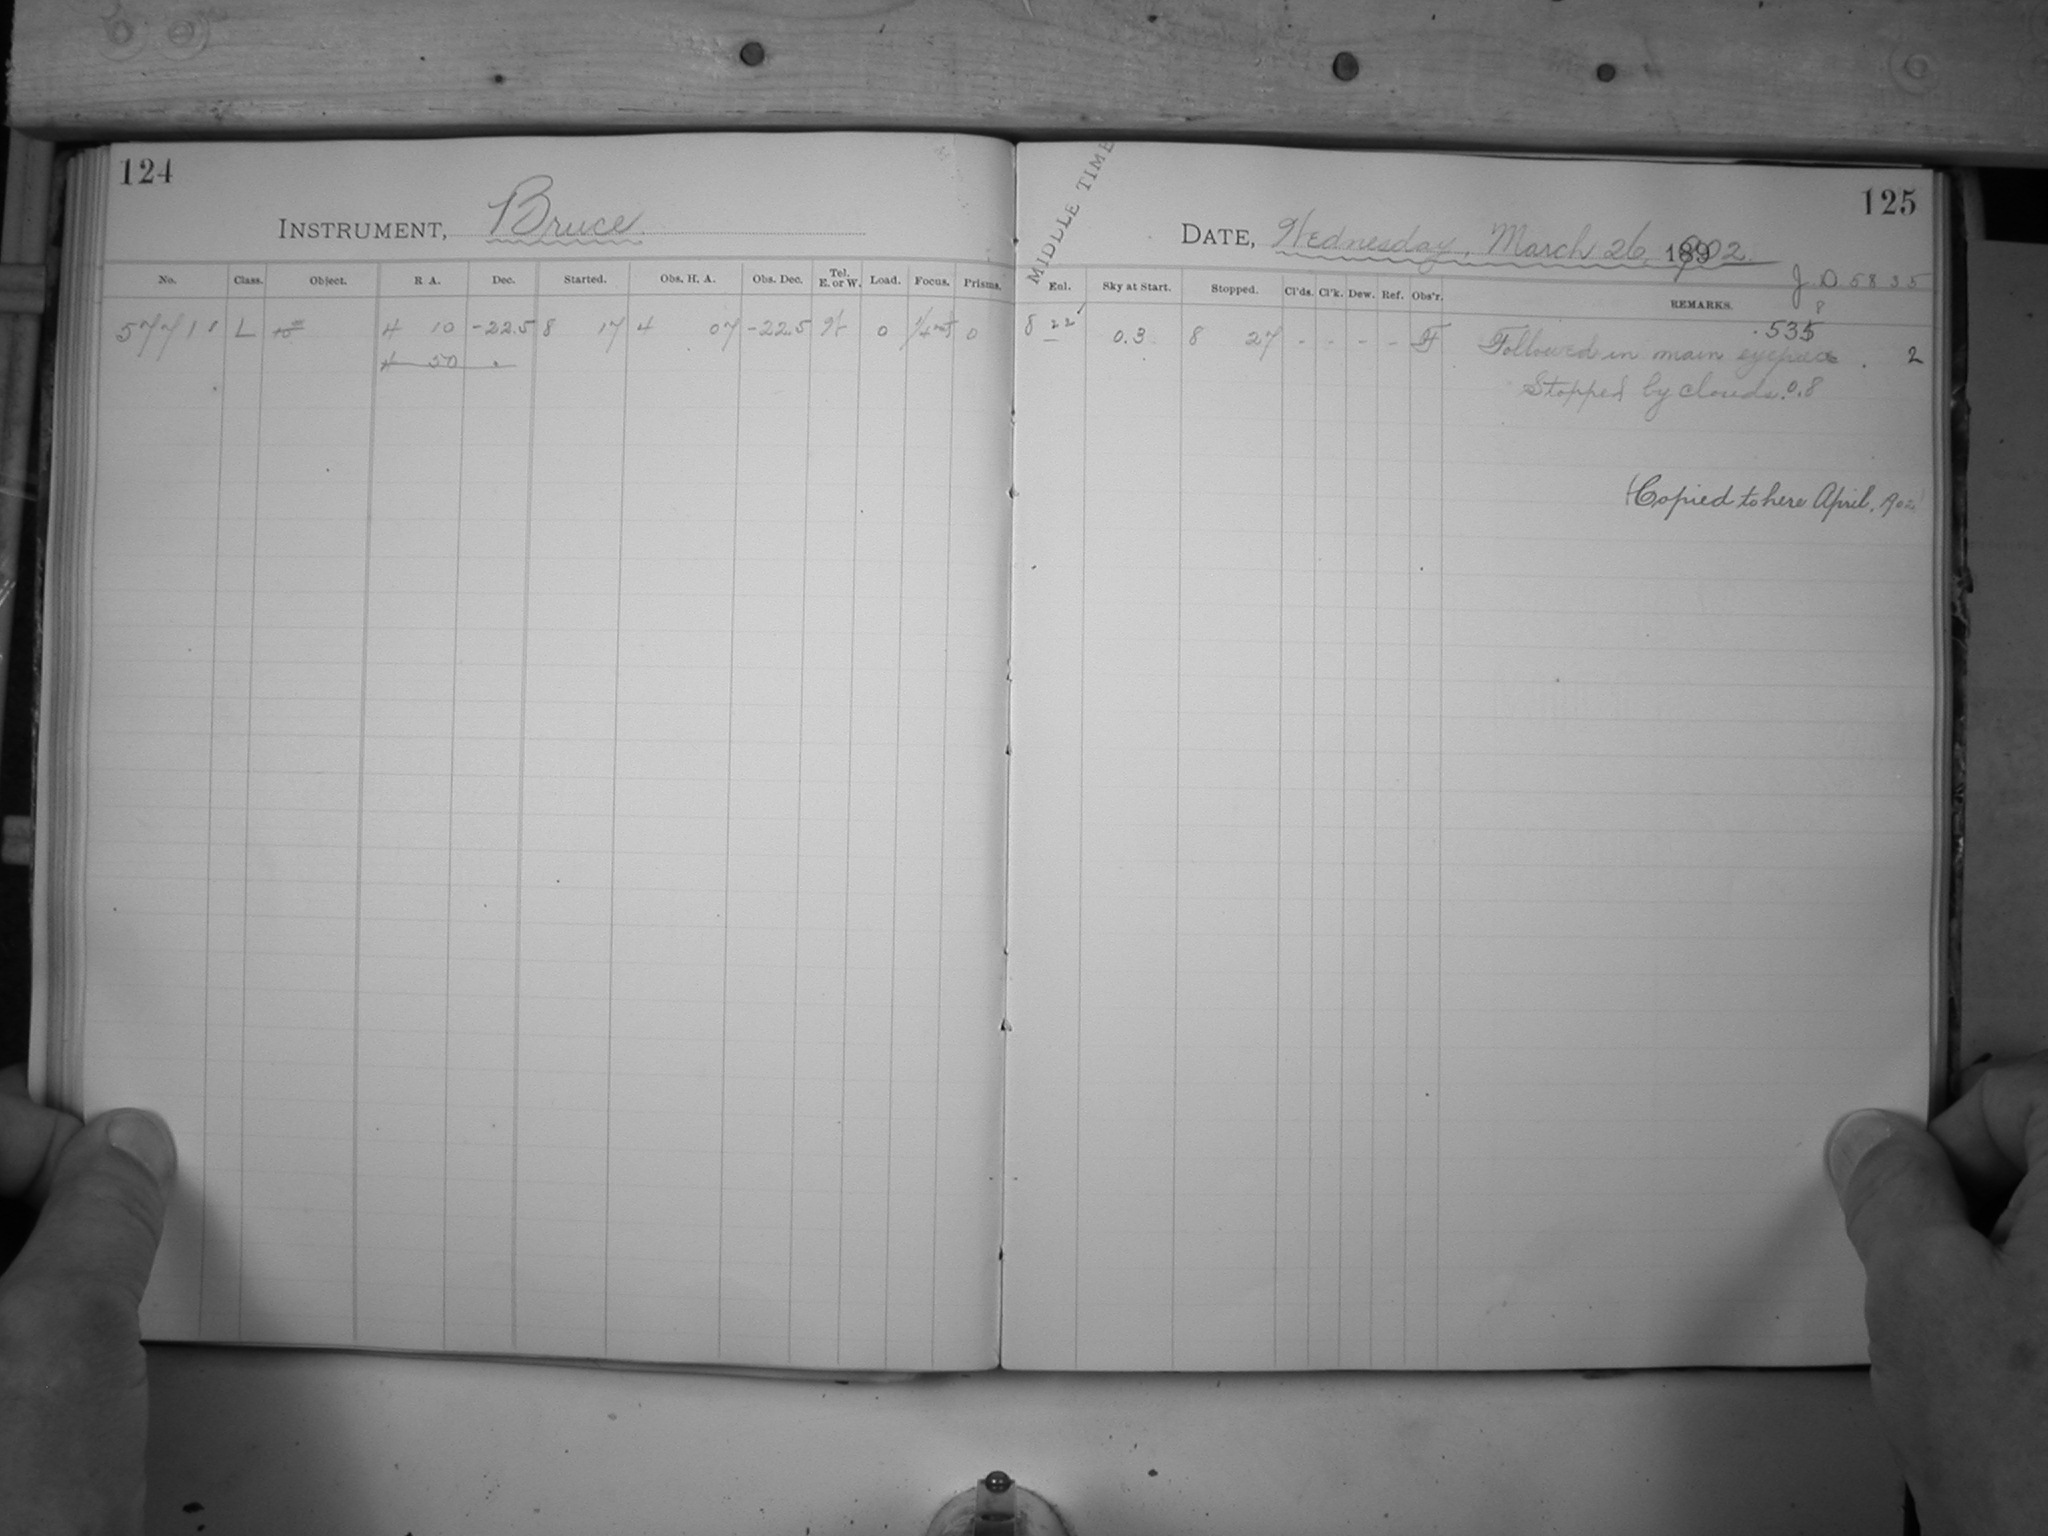 124
INSTRUMENT, Bruce
No. Class. Object. R A. Dec. Started. Obs. H. A. Obs. Dec. Tel. E. or W. Load. Focus. Prisms.
L 4 10 -22.5 8 17 4 07 -22.5 0 0
4 50
125
MIDDLE TIME
DATE, Wednesday, March 26, 1902
J.D 5835
Enl. Sky at Start. Stopped. Cl'ds. Cl'k. Dew. Ref. Obs'r. REMARKS.
8
.535
8 22 0.3 8 27 - - - - F Followed in main eyepiece. 2
Stopped by clouds. 0.8
(Copied to here April, 1902)